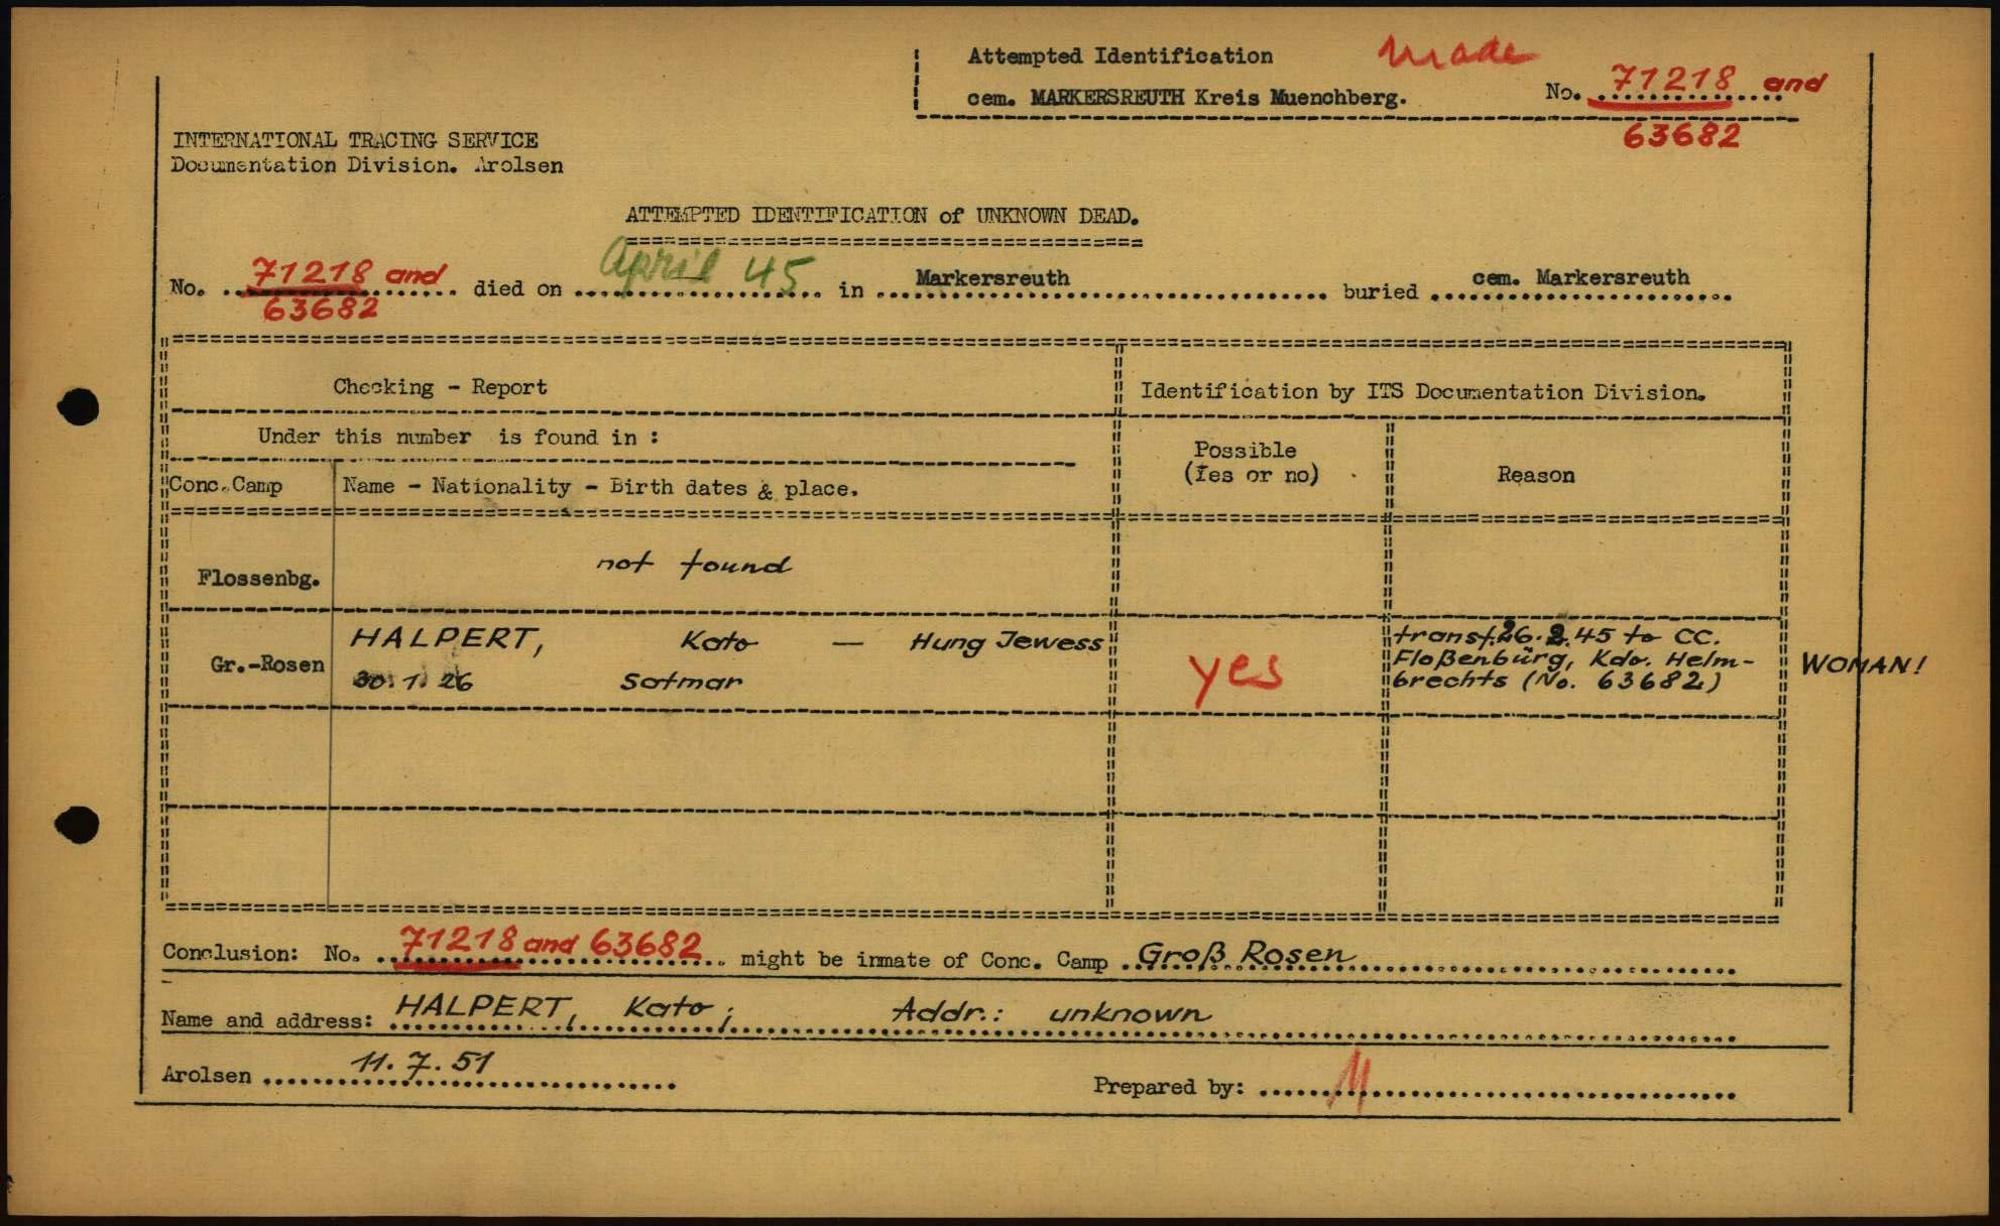 Attempted Identification made
cem. MARKERSREUTH Kreis Muenchberg. No. 71218 and
63682
INTERNATIONAL TRACING SERVICE
Documentation Division. Arolsen
ATTEMPTED IDENTIFICATION of UNKNOWN DEAD.
No. 71218 and died on April 45 in Markersreuth buried cem. Markersreuth
63682
Checking - Report
Identification by ITS Documentation Division.
Under this number is found in :
Possible
(Yes or no)
Reason
Conc.Camp Name - Nationality - Birth dates & place.
Flossenbg. not found
Gr.-Rosen
HALPERT, Kato — Hung Jewess
30.1.26 Satmar
yes
transf. 26.2.45 to CC.
Floßenbürg, Kdo. Helm-
brechts (No. 63682)
WOMAN!
Conclusion: No. 71218 and 63682 might be inmate of Conc. Camp Groß Rosen
Name and address: HALPERT, Kato; Addr.: unknown
Arolsen 11.7.51
Prepared by: